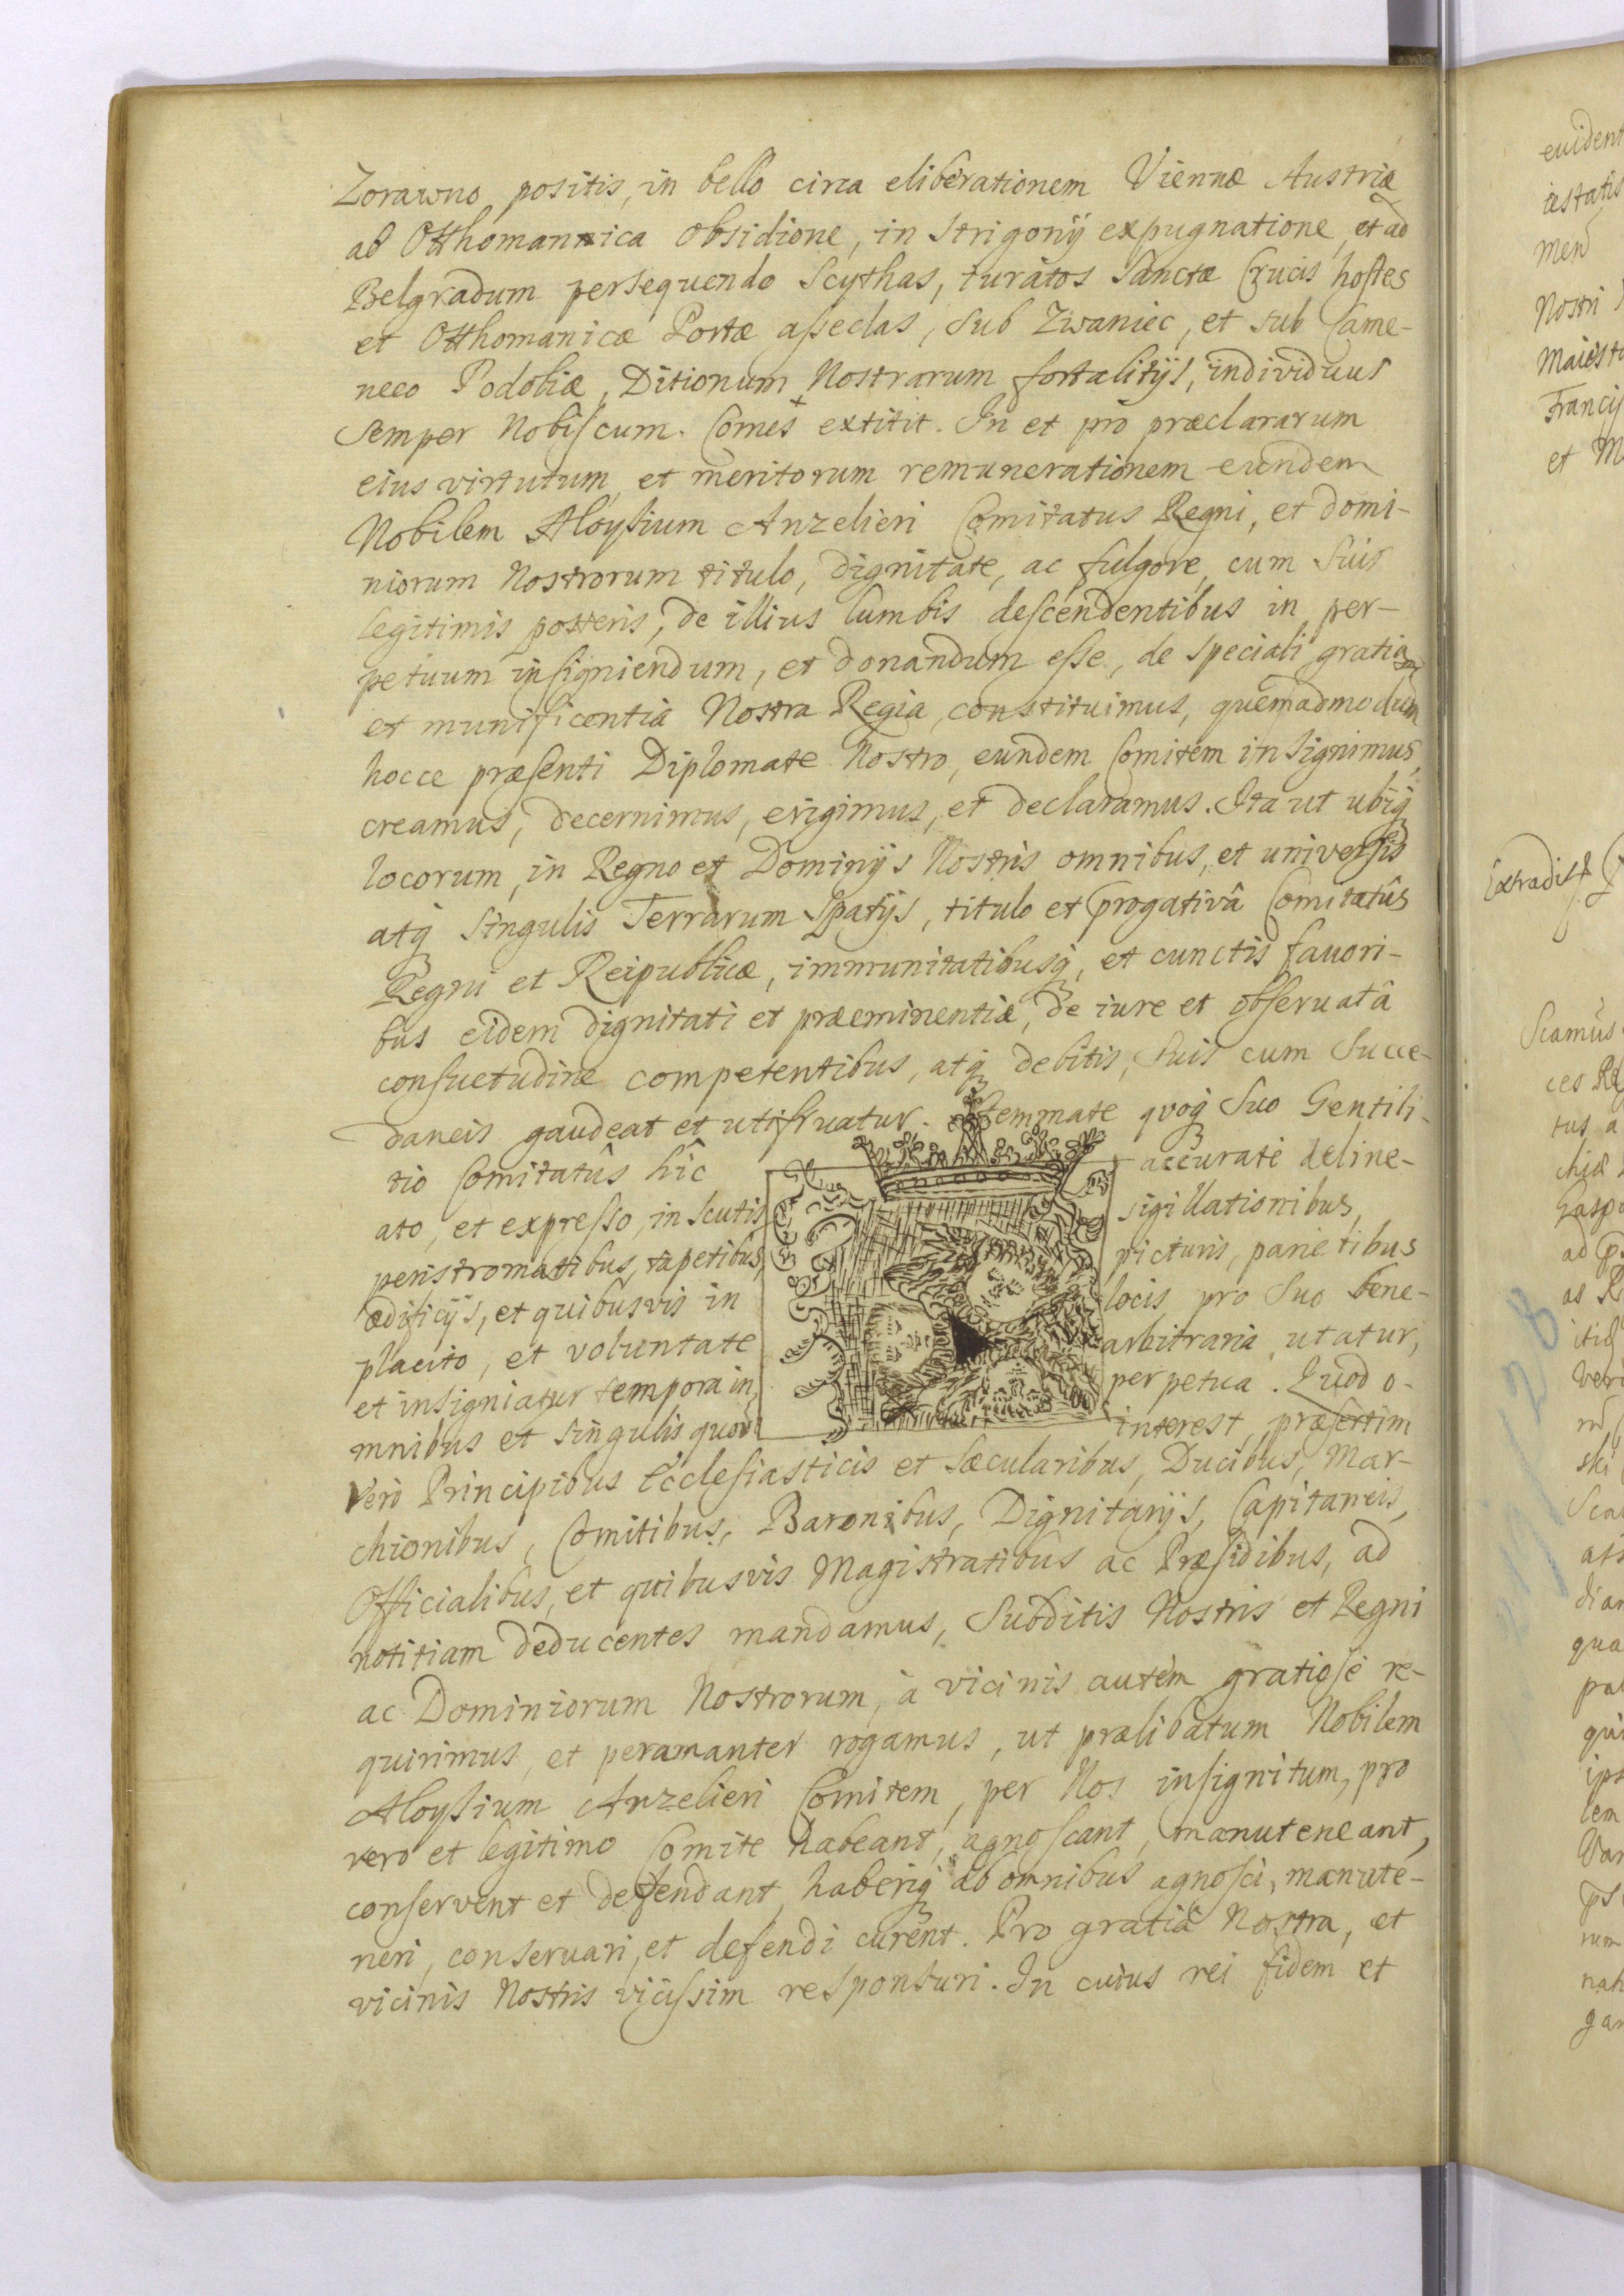 Zorawno positis, in bello circa eliberationem Viennæ Austriæ
ab Otthomannica obsidione, in Strigonij expugnatione, et ad
Belgradum persequendo Scythas, iuratos Sanctæ Crucis hostes
et Otthomanicæ Portæ asseclas, sub Zwaniec, et sub Came-
neco Podoliæ, Ditionum Nostrarum fortalitijs, individuus
semper Nobiscum Comes extitit. In et pro præclararum
eius virtutum, et meritorum remunerationem eundem
Nobilem Aloysium Anzelieri Comitatus Regni, et domi-
niorum Nostrorum titulo, dignitate, ac fulgore, cum suis
legitimis posteris, de illius lumbis descendentibus in per-
petuum insigniendum, et donandum esse, de speciali gratia
et munificentia Nostra Regia, constituimus, quemadmodum
hocce præsenti Diplomate Nostro, eundem Comitem insignimus,
creamus, decernimus, erigimus, et declaramus. Ita ut ubiq
locorum, in Regno et Dominijs Nostris omnibus, et universis
atq singulis Terrarum Spatijs, titulo et progativâ Comitatûs
Regni et Reipublicæ, immunitatibusq, et cunctis favori-
bus eidem dignitati et præeminentiæ, de iure et observatâ
consuetudine competentibus, atq debitis, suis cum succe-
daneis gaudeat et utifruatur. Stemmate quoq suo Gentili-
tio Comitatûs hîc accuratè deline-
ato, et expresso, in scutis sigillationibus,
peristromatibus, tapetibus, picturis, parietibus
ædificijs, et quibusvis in locis pro suo bene-
placito, et voluntate arbitraria utatur,
et insigniatur tempora in perpetua. Quod o-
mnibus et singulis quorū interest, præsertim
Verò Principibus Ecclesiasticis et Sæcularibus, Ducibus, Mar-
chionibus, Comitibus, Baronibus, Dignitarijs, Capitaneis,
Officialibus, et quibusvis Magistratibus ac Præsidibus, ad
notitiam deducentes mandamus, Subditis Nostris et Regni
ac Dominiorum Nostrorum, à vicinis autèm gratiosè re-
quirimus, et peramanter rogamus, ut prælibatum Nobilem
Aloysium Anzelieri Comitem, per Nos insignitum, pro
vero et legitimo Comite habeant, agnoscant, manuteneant,
conservent et defendant, haberiq ab omnibus agnosci, manute-
neri, conservari, et defendi curent. Pro gratiâ Nostra, et
vicinis Nostris vicissim responsuri. In cuius rei fidem et